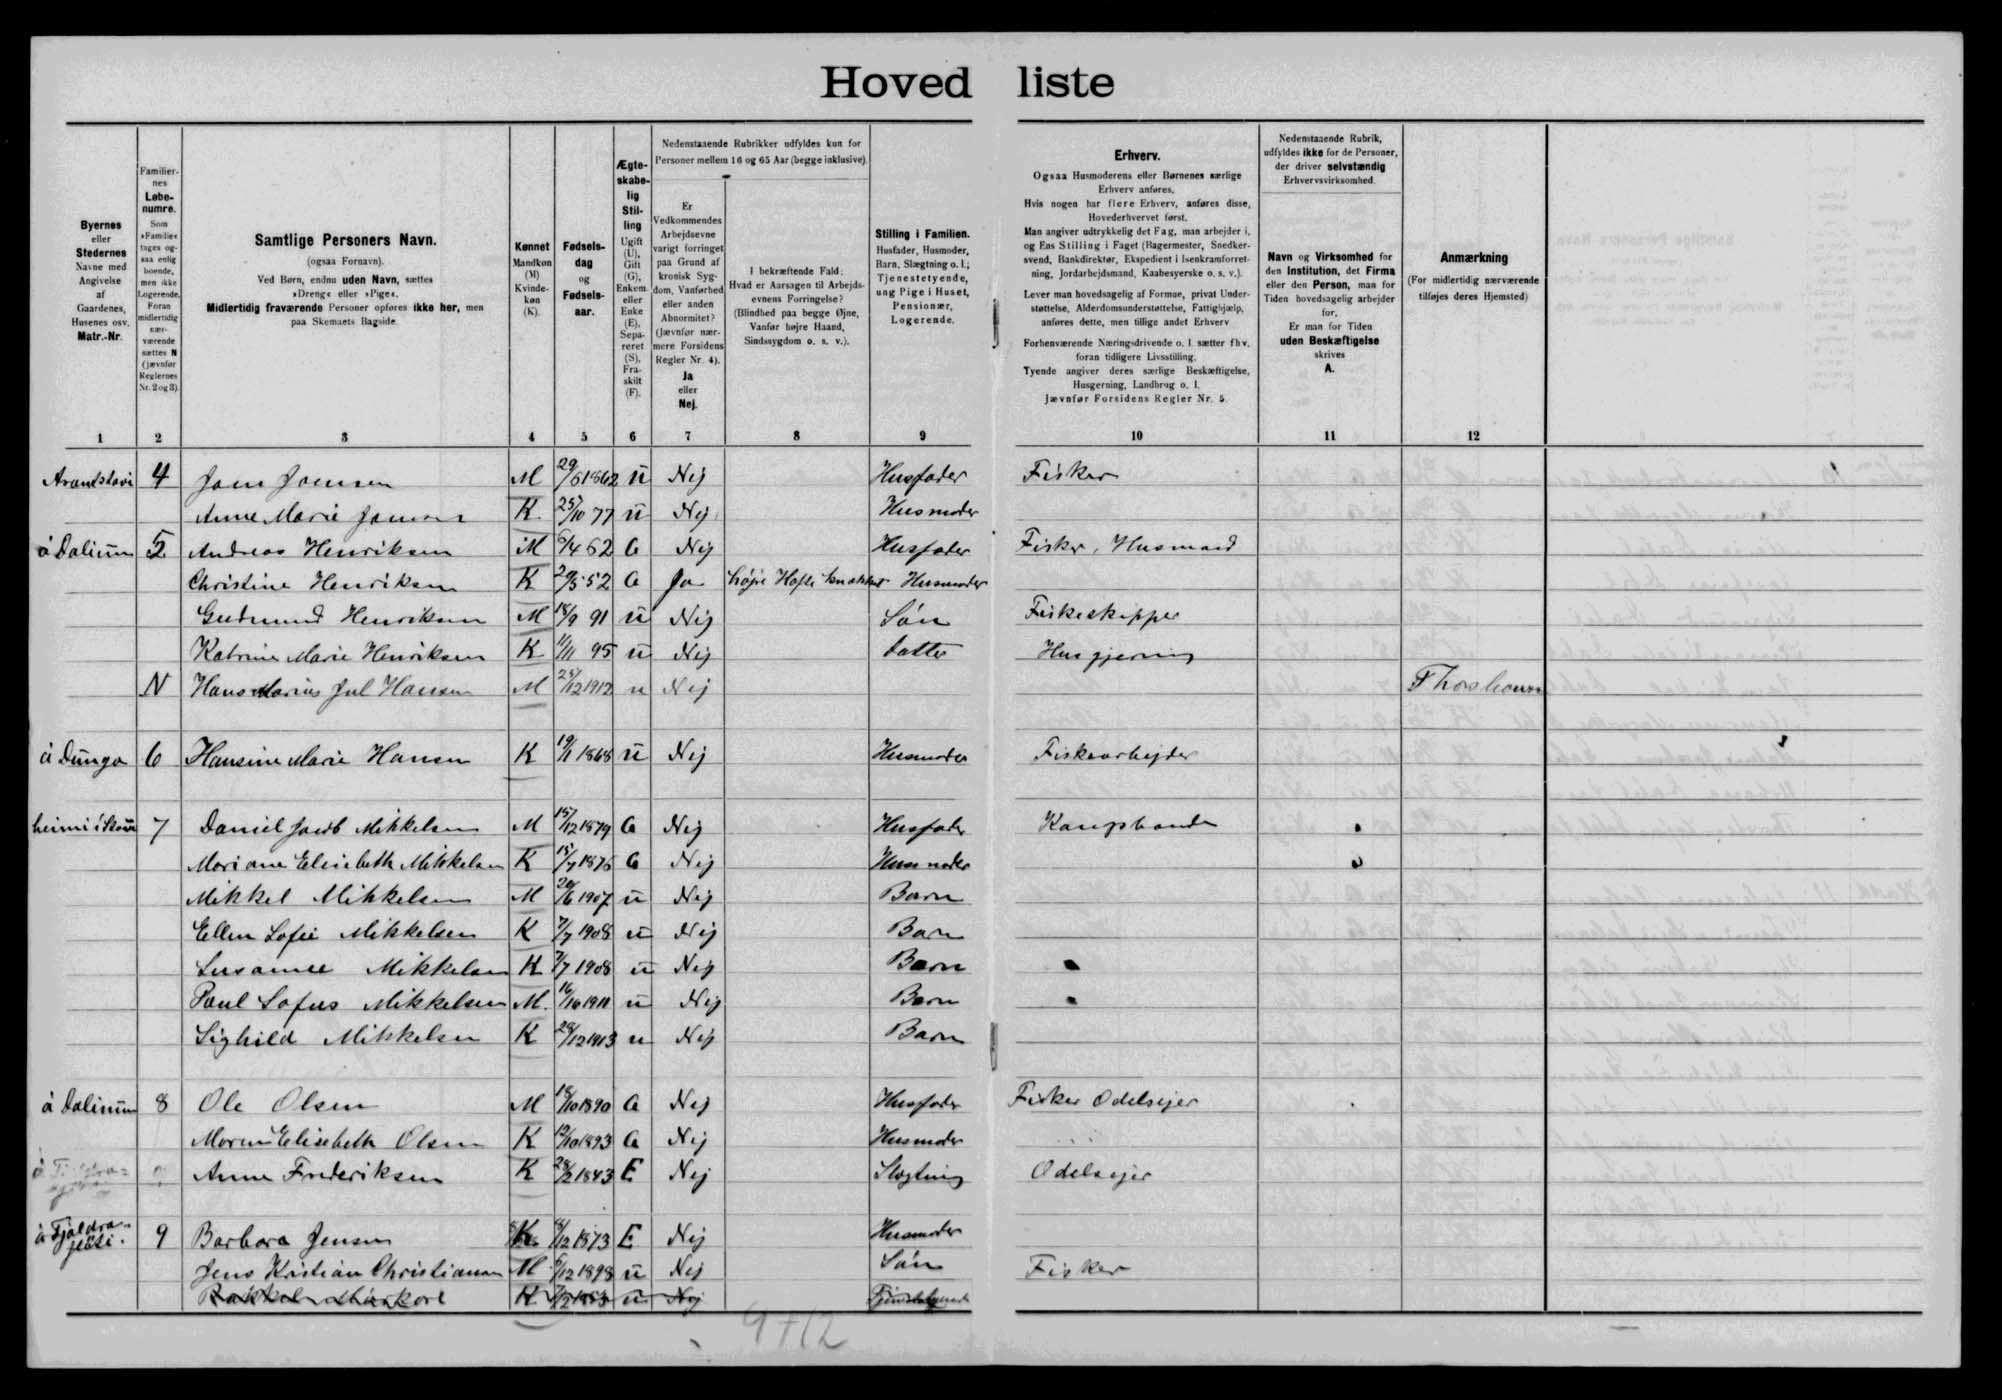 Hoved liste
Byernes
eller
Stedernes
Navne med
Angivelse
af
Gaardenes,
Husenes osv.
Matr.-Nr.
1
Familier-
nes
Løbe-
numre.
Som
»Familie«
tages og-
saa enlig
boende,
men ikke
Logerende.
Foran
midlertidig
nær-
værende
sættes N
(jævnfør
Reglernes
Nr. 2 og 3).
2
Samtlige Personers Navn.
(ogsaa Fornavn).
Ved Børn, endnu uden Navn, sættes
»Dreng« eller »Pige«.
Midlertidig fraværende Personer opføres ikke her, men
paa Skemaets Bagside.
3
Kønnet
Mandkøn
(M)
Kvinde-
køn
(K).
4
Fødsels-
dag
og
Fødsels-
aar.
5
Ægte-
skabe-
lig
Stil-
ling
Ugift
(U),
Gift
(G),
Enkem.
eller
Enke
(E),
Sepa-
reret
(S),
Fra-
skilt
(F).
6
Nedenstaaende Rubrikker udfyldes kun for
Personer mellem 16 og 65 Aar (begge inklusive).
Er
Vedkommendes
Arbejdsevne
varigt forringet
paa Grund af
kronisk Syg-
dom, Vanførhed
eller anden
Abnormitet?
(Jævnfør nær-
mere Forsidens
Regler Nr. 4).
Ja
eller
Nej.
7
I bekræftende Fald:
Hvad er Aarsagen til Arbejds-
evnens Forringelse?
(Blindhed paa begge Øjne,
Vanfør højre Haand,
Sindssygdom o. s. v.).
8
Stilling i Familien.
Husfader, Husmoder,
Barn, Slægtning o. l.;
Tjenestetyende,
ung Pige i Huset,
Pensionær,
Logerende.
9
Erhverv.
Ogsaa Husmoderens eller Børnenes særlige
Erhverv anføres.
Hvis nogen har flere Erhverv, anføres disse,
Hovederhvervet først.
Man angiver udtrykkelig det Fag, man arbejder i,
og Ens Stilling i Faget (Bagermester, Snedker-
svend, Bankdirektør, Ekspedient i Isenkramforret-
ning, Jordarbejdsmand, Kaabesyerske o. s. v.).
Lever man hovedsagelig af Formue, privat Under-
støttelse, Alderdomsunderstøttelse, Fattighjælp,
anføres dette, men tillige andet Erhverv
Forhenværende Næringsdrivende o. l. sætter fhv.
foran tidligere Livsstilling.
Tyende angiver deres særlige Beskæftigelse,
Husgerning, Landbrug o. l.
Jævnfør Forsidens Regler Nr. 5.
10
Nedenstaaende Rubrik,
udfyldes ikke for de Personer,
der driver selvstændig
Erhvervsvirksomhed.
Navn og Virksomhed for
den Institution, det Firma
eller den Person, man for
Tiden hovedsagelig arbejder
for.
Er man for Tiden
uden Beskæftigelse
skrives
A.
11
Anmærkning
(For midlertidig nærværende
tilføjes deres Hjemsted)
12
4 M 29/6 1862 u Nej Husfader Fisker
Anne Marie K. 25/10 77 u Nej Husmoder
á Dalinum 5 Andreas Henriksen M 6/4 62 G Nej Husfader Fisker, Husmand
Christine Henriksen K 29/5 52 G Ja højre Hofte knækket Husmoder
Gudmund Henriksen M 18/9 91 u Nej Søn Fiskeskipper
Katrine Marie Henriksen K 1/11 95 u Nej Datter Husgjerning
N Hans Marius Jul Hansen M 25/12 1912 u Nej Thorshavn
á Dunga 6 Hansine Marie Hansen K 19/1 1868 u Nej Husmoder Fiskearbejder
heimi i 7 Daniel Jacob Mikkelsen M 15/12 1879 G Nej Husfader
Mariane Elisabeth Mikkelsen K 15/7 1876 G Nej Husmoder
Mikkel Mikkelsen M 20/6 1907 u Nej Barn
Ellen Sofie Mikkelsen K 7/7 1908 u Nej Barn
Susanne Mikkelsen K 7/7 1908 u Nej Barn
Paul Sofus Mikkelsen M. 16/10 1911 u Nej Barn
Sighild Mikkelsen K 28/12 1913 u Nej Barn
á Dalinum 8 Ole Olsen M 18/10 1890 G Nej Husfader Fisker Odelsejer
Elisabeth Olsen K 12/10 1893 G Nej Husmoder
Anne Frederiksen K 28/2 1843 E Nej Slægtning Odelsejer
9 Barbara Jensen K 8/12 1873 E Nej Husmoder
Jens Kristian Christiansen M 6/12 1898 u Nej Søn Fisker
K u Nej
9+12